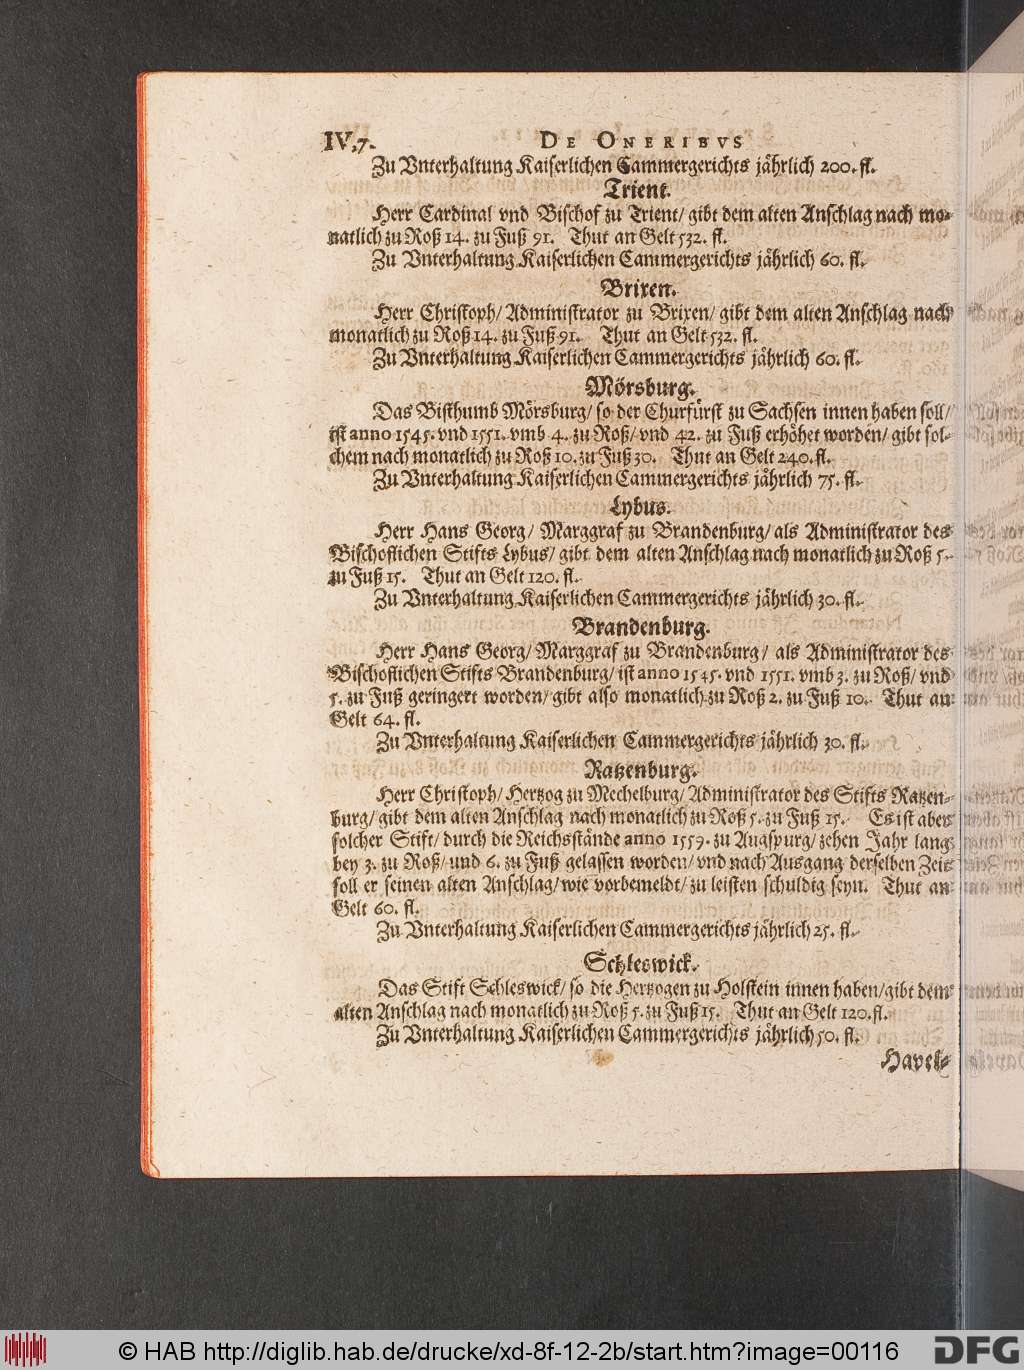 IV,7.
DE ONERIBVS
Zu Vnterhaltung Kaiserlichen Cammergerichts jährlich 200. fl.
Trient.
Herr Cardinal vnd Bischof zu Trient/ gibt dem alten Anschlag nach mo-
natlich zu Roß 14. zu Fuß 91. Thut an Gelt 532. fl.
Zu Vnterhaltung Kaiserlichen Cammergerichts jährlich 60. fl.
Brixen.
Herr Christoph/ Administrator zu Brixen/ gibt dem alten Anschlag nach
monatlich zu Roß 14. zu Fuß 91. Thut an Gelt 532. fl.
Zu Vnterhaltung Kaiserlichen Cammergerichts jährlich 60. fl.
Mörsburg.
Das Bisthumb Mörsburg/ so der Churfürst zu Sachsen innen haben soll/
ist anno 1545. vnd 1551. vmb 4. zu Roß/ vnd 42. zu Fuß erhöhet worden/ gibt sol-
chem nach monatlich zu Roß 10. zu Fuß 30. Thut an Gelt 240. fl.
Zu Vnterhaltung Kaiserlichen Cammergerichts jährlich 75. fl.
Lybus.
Herr Hans Georg/ Marggraf zu Brandenburg/ als Administrator des
Bischoflichen Stifts Lybus/ gibt dem alten Anschlag nach monatlich zu Roß 5.
zu Fuß 15. Thut an Gelt 120. fl.
Zu Vnterhaltung Kaiserlichen Cammergerichts jährlich 30. fl.
Brandenburg.
Herr Hans Georg/ Marggraf zu Brandenburg/ als Administrator des
Bischoflichen Stifts Brandenburg/ ist anno 1545. vnd 1551. vmb 3. zu Roß/ vnd
5. zu Fuß geringert worden/ gibt also monatlich zu Roß 2. zu Fuß 10. Thut an
Gelt 64. fl.
Zu Vnterhaltung Kaiserlichen Cammergerichts jährlich 30. fl.
Ratzenburg.
Herr Christoph/ Hertzog zu Mechelburg/ Administrator des Stifts Ratzen-
burg/ gibt dem alten Anschlag nach monatlich zu Roß 5. zu Fuß 15. Es ist aber
solcher Stift/ durch die Reichsstände anno 1559. zu Augspurg/ zehen Jahr lang
bey 3. zu Roß/ und 6. zu Fuß gelassen worden/ vnd nach Ausgang derselben Zeit
soll er seinen alten Anschlag/ wie vorbemeldt/ zu leisten schuldig seyn. Thut an
Gelt 60. fl.
Zu Vnterhaltung Kaiserlichen Cammergerichts jährlich 25. fl.
Schleswick.
Das Stift Schleswick/ so die Hertzogen zu Holstein innen haben/ gibt dem
alten Anschlag nach monatlich zu Roß 5. zu Fuß 15. Thut an Gelt 120. fl.
Zu Vnterhaltung Kaiserlichen Cammergerichts jährlich 50. fl.
Havel-
© HAB http://diglib.hab.de/drucke/xd-8f-12-2b/start.htm?image=00116
DFG